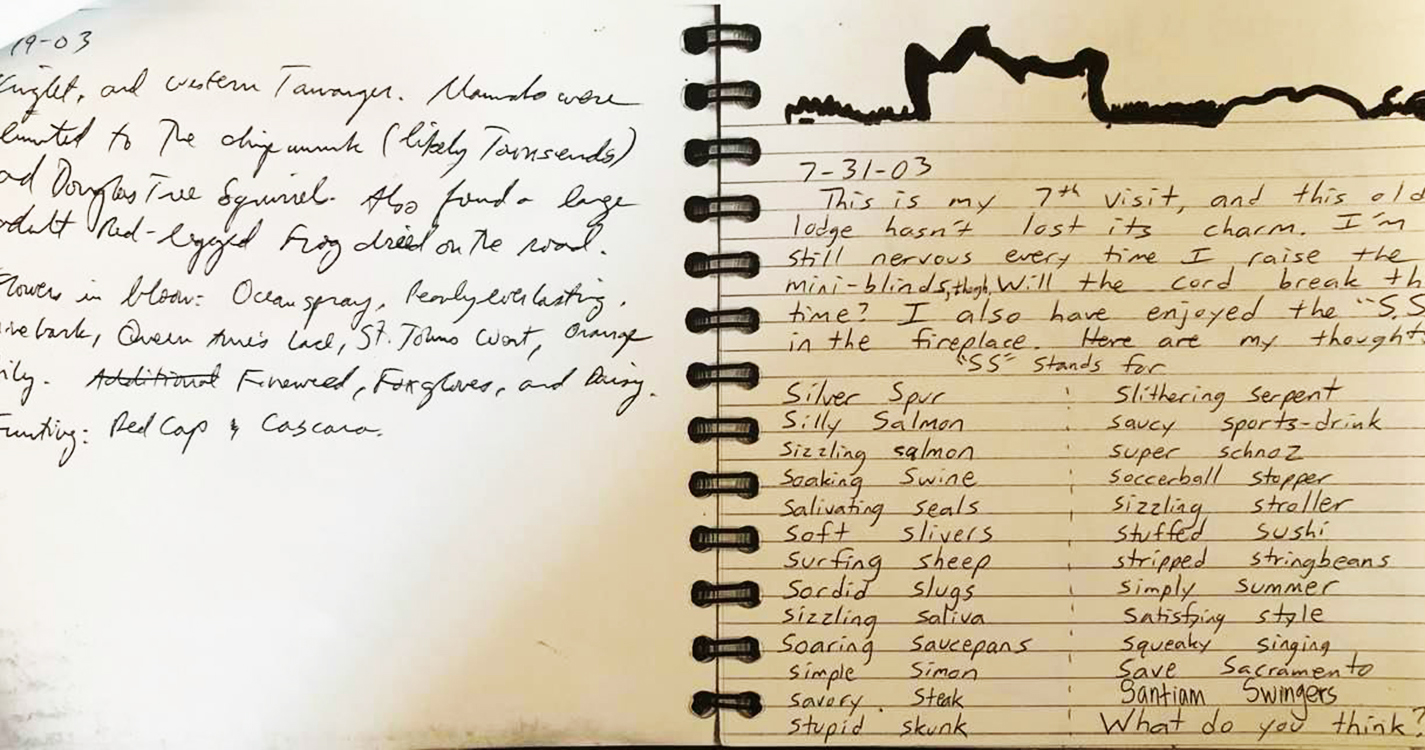 19-03
Kinglet, and western Tananger. Mammals were
limited to the chipmunk (likely Townsends)
and Douglas Tree Squirrel. Also found a large
adult Red-legged Frog dried on the road.
Flowers in bloom: Ocean spray, Pearly everlasting,
Ninebark, Queen Ann's Lace, St. Johns Wort, Orange
lily. Additional Fireweed, Foxgloves, and Daisy.
Fruiting: Red Cap & Cascara.
7-31-03
This is my 7th visit, and this old
lodge hasn't lost its charm. I'm
still nervous every time I raise the
mini-blinds, though. Will the cord break th
time? I also have enjoyed the "SS
in the fireplace. Here are my thoughts
"SS" stands for
Silver Spur Slithering serpent
Silly Salmon saucy sports-drink
Sizzling salmon super schnoz
Soaking Swine soccerball stopper
Salivating seals sizzling stroller
Soft slivers stuffed sushi
Surfing sheep stripped stringbeans
Sordid slugs simply summer
sizzling saliva Satisfying style
Soaring saucepans squeaky singing
simple Simon Save Sacramento
savory. Steak Santiam Swingers
stupid skunk What do you think?